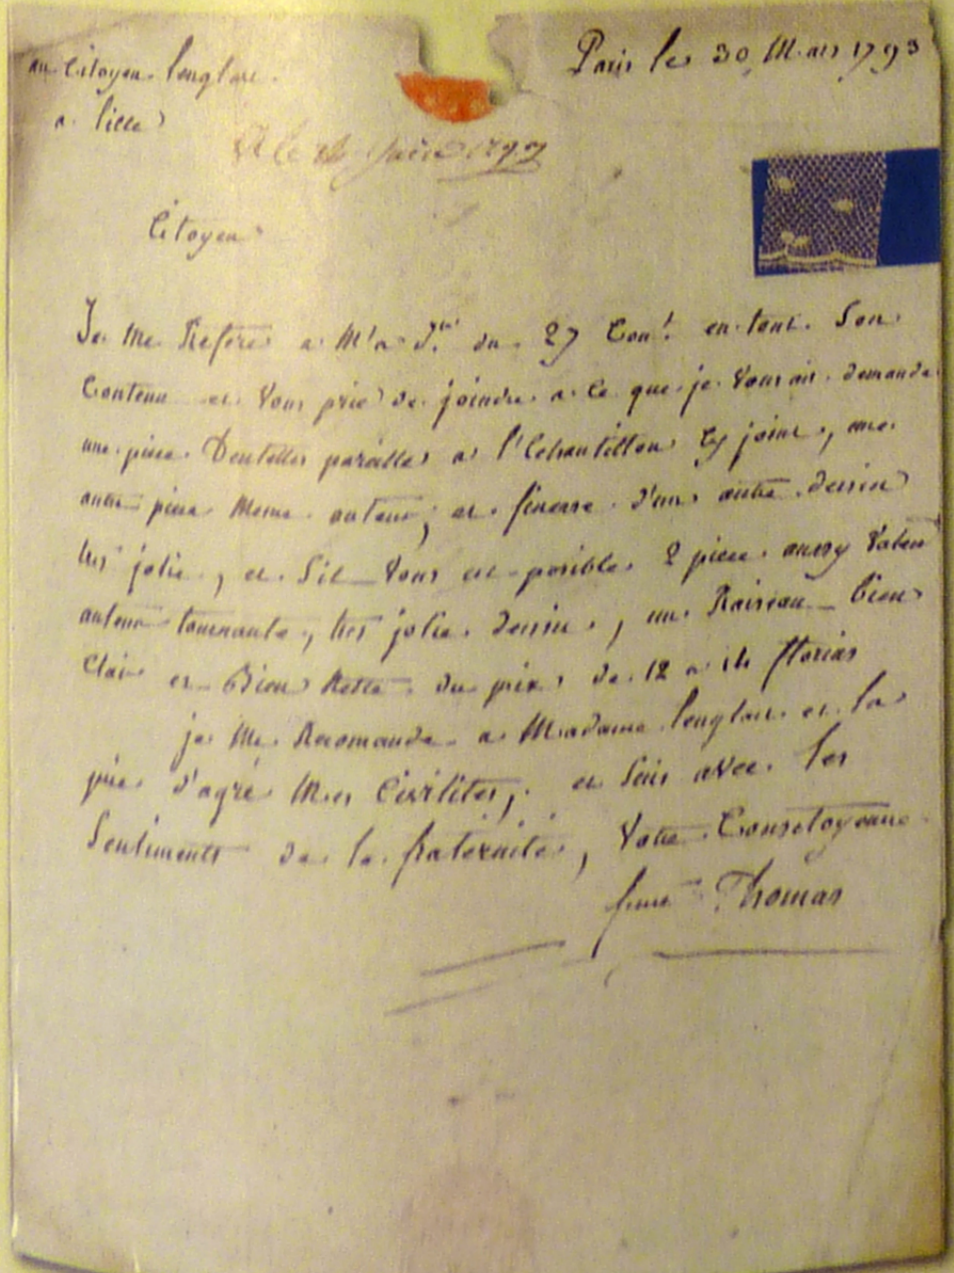 au Citoyen Longlare
a Lille
Paris le 30 Mars 1793
Citoyen
Je Me Refere a M'a du 27 Cont en tout Son
Contenu et Vous prie de joindre a Ce que je Vous ai demande
une piece Dentelles pareilles a l'Echantillon Cy joint, une
autre piece Meme auteur, et finesse d'un autre dessin
tres jolie, et Sil Vous est posible 2 piece aussy
auteur tournante, tres jolie dessin, un Raiseau bien
Clair et Bien Nette du prix de 12 a 14 florins
je Me Recomande a Madame Longlare et la
prie d'agré Mes Civilités, et Suis avec les
Sentiments de la fraternité, Votre Consetoyenne
femme Thomas